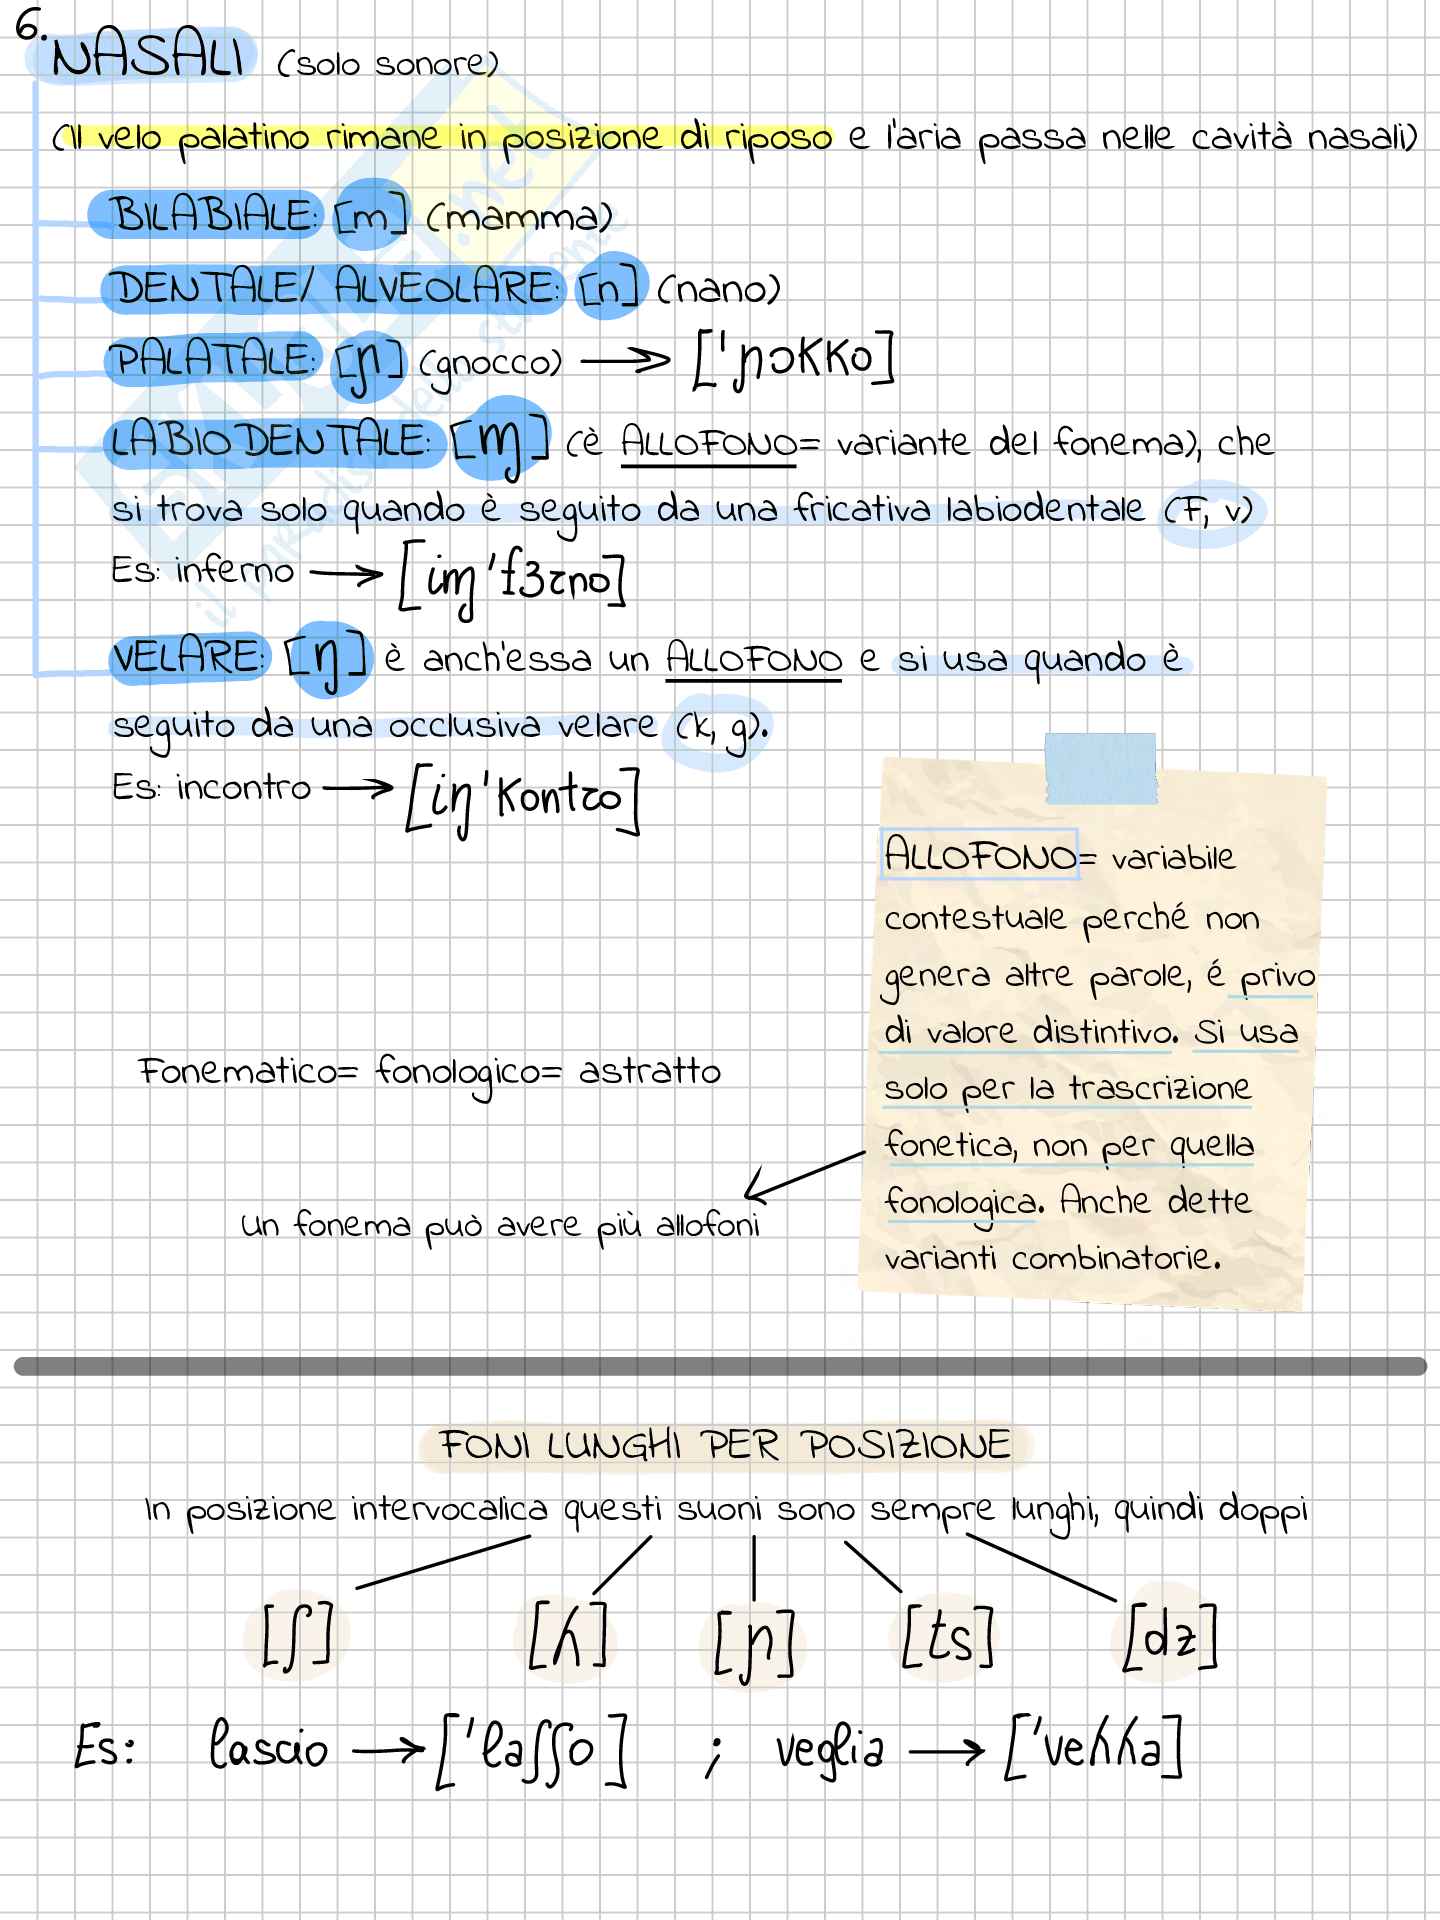 6.
NASALI (solo sonore)
(Il velo palatino rimane in posizione di riposo e l'aria passa nelle cavità nasali)
BILABIALE: [m] (mamma)
DENTALE/ ALVEOLARE: [n] (nano)
PALATALE: [ɲ] (gnocco) → ['ɲɔkko]
LABIODENTALE: [ɱ] (è ALLOFONO= variante del fonema), che
si trova solo quando è seguito da una fricativa labiodentale (F, v)
Es: inferno → [iɱ'fɜrno]
VELARE: [ŋ] è anch'essa un ALLOFONO e si usa quando è
seguito da una occlusiva velare (k, g).
Es: incontro → [iŋ'kontro]
ALLOFONO= variabile
contestuale perché non
genera altre parole, é privo
di valore distintivo. Si usa
solo per la trascrizione
fonetica, non per quella
fonologica. Anche dette
varianti combinatorie.
Fonematico= fonologico= astratto
un fonema può avere più allofoni
FONI LUNGHI PER POSIZIONE
In posizione intervocalica questi suoni sono sempre lunghi, quindi doppi
[ʃ] [ʎ] [ɲ] [ts] [dz]
Es: lascio → ['laʃʃo] ; veglia → ['veʎʎa]